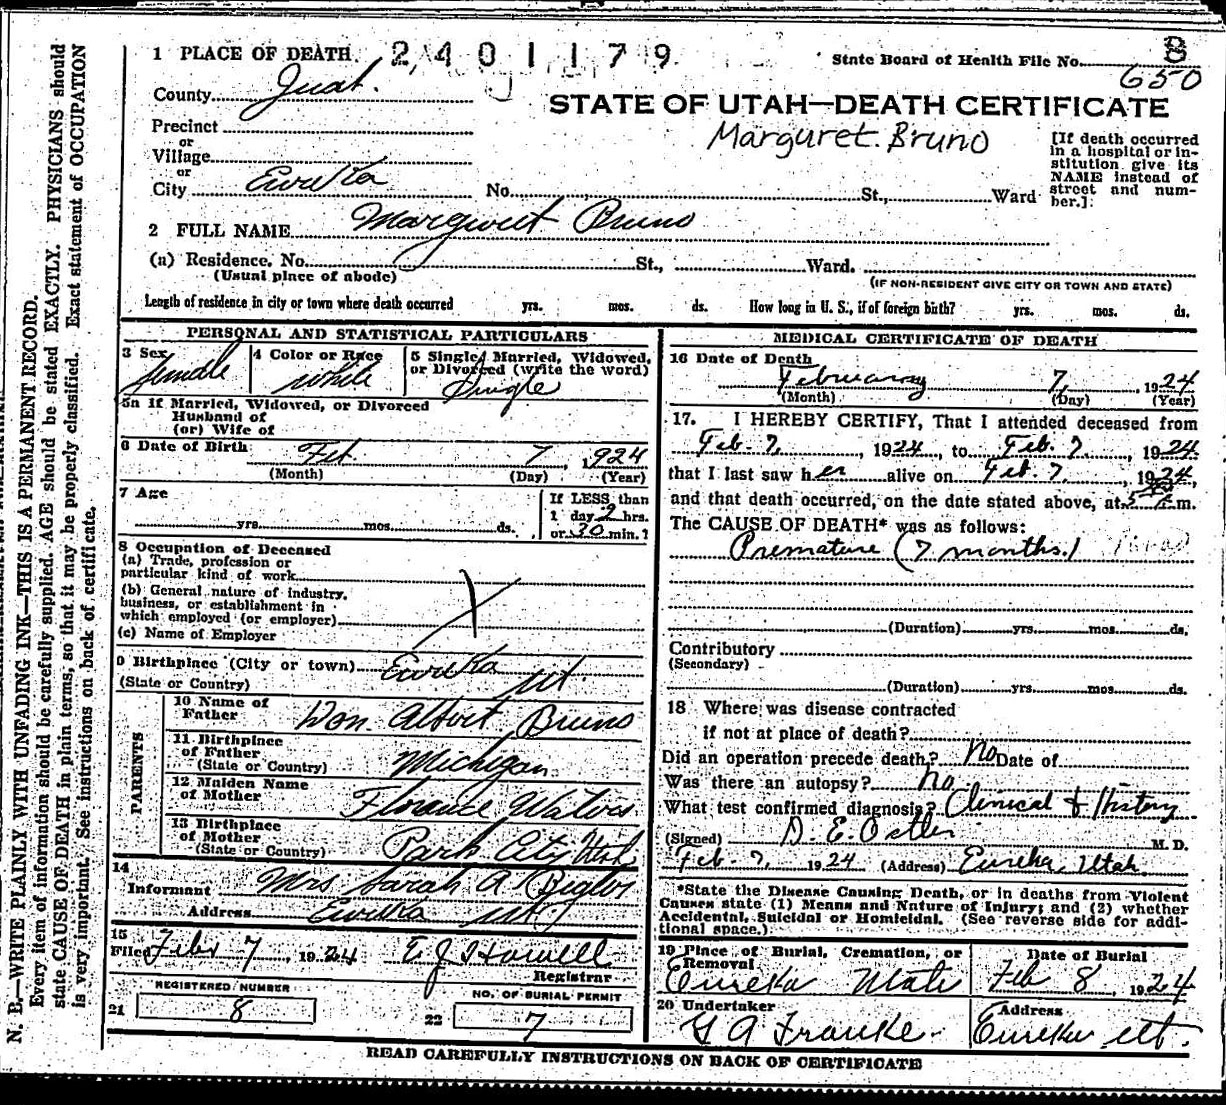 1 PLACE OF DEATH 2401179 State Board of Health File No. 8
650
County Juab.
STATE OF UTAH—DEATH CERTIFICATE
Precinct
Marguret. Bruno
or
Village
or
City Eureka No. St., Ward
[If death occurred
in a hospital or in-
stitution give its
NAME instead of
street and num-
ber.]
2 FULL NAME Margaret Bruno
(a) Residence. No. St., Ward.
(Usual place of abode) (IF NON-RESIDENT GIVE CITY OR TOWN AND STATE)
Length of residence in city or town where death occurred yrs. mos. ds. How long in U. S., if of foreign birth? yrs. mos. ds.
PERSONAL AND STATISTICAL PARTICULARS
3 Sex female
4 Color or Race white
5 Single, Married, Widowed,
or Divorced (write the word)
Single
5a If Married, Widowed, or Divorced
Husband of
(or) Wife of
6 Date of Birth Feb. 7, 1924
(Month) (Day) (Year)
7 Age
yrs. mos. ds.
If LESS than
1 day 2 hrs.
or 30 min.?
8 Occupation of Deceased
(a) Trade, profession or
particular kind of work
(b) General nature of industry,
business, or establishment in
which employed (or employer)
(c) Name of Employer
9 Birthplace (City or town) Eureka
(State or Country) Ut
PARENTS
10 Name of
Father Don. Albert Bruno
11 Birthplace
of Father
(State or Country) Michigan
12 Maiden Name
of Mother Florance Waters
13 Birthplace
of Mother
(State or Country) Park City Utah
14
Informant Mrs Sarah A.
Address Eureka Ut.
15
Filed Febr 7, 1924 E J Howell
Registrar
REGISTERED NUMBER
21 8
NO. OF BURIAL PERMIT
22 7
MEDICAL CERTIFICATE OF DEATH
16 Date of Death
February 7, 1924
(Month) (Day) (Year)
17. I HEREBY CERTIFY, That I attended deceased from
Feb. 7, 1924, to Feb. 7, 1924.
that I last saw her alive on Feb. 7, 1924,
and that death occurred, on the date stated above, at 5 m.
The CAUSE OF DEATH* was as follows:
Premature (7 months.)
(Duration) yrs. mos. ds.
Contributory
(Secondary)
(Duration) yrs. mos. ds.
18 Where was disease contracted
if not at place of death?
Did an operation precede death? No Date of
Was there an autopsy? No
What test confirmed diagnosis? Clinical & History
(Signed) D. E. Ostler M. D.
Feb. 7, 1924 (Address) Eureka, Utah
*State the Disease Causing Death, or in deaths from Violent
Causes state (1) Means and Nature of Injury; and (2) whether
Accidental, Suicidal or Homicidal. (See reverse side for addi-
tional space.)
19 Place of Burial, Cremation, or
Removal
Eureka Utah
Date of Burial
Feb 8, 1924
20 Undertaker
G A Franke.
Address
Eureka Ut.
READ CAREFULLY INSTRUCTIONS ON BACK OF CERTIFICATE
N. B.—WRITE PLAINLY WITH UNFADING INK—THIS IS A PERMANENT RECORD.
Every item of information should be carefully supplied. AGE should be stated EXACTLY. PHYSICIANS should
state CAUSE OF DEATH in plain terms, so that it may be properly classified. Exact statement of OCCUPATION
is very important. See instructions on back of certificate.